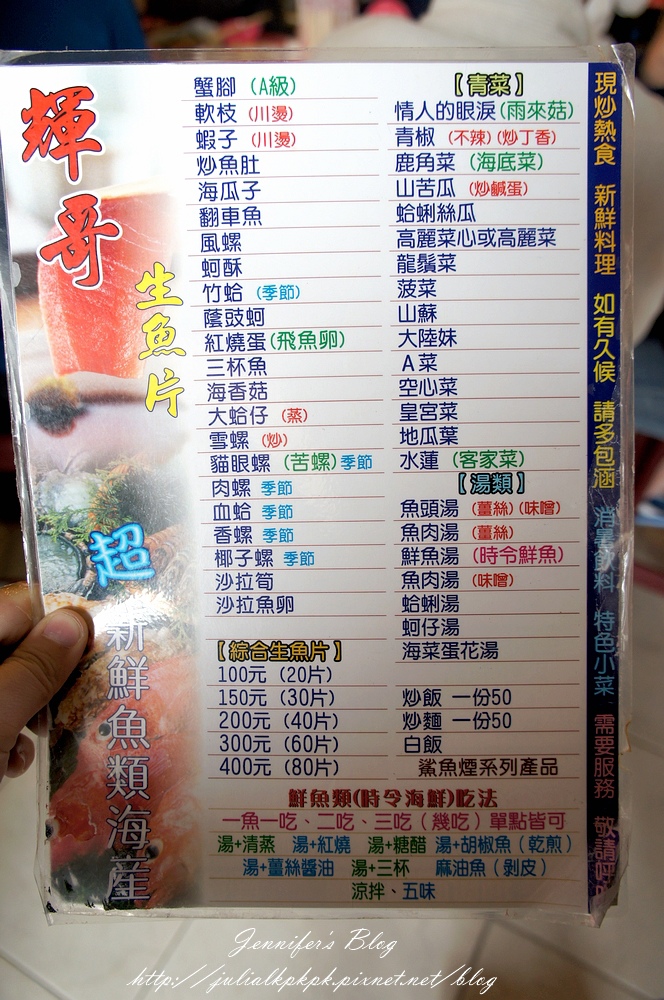 輝哥
生魚片
超
新鮮魚類海産
蟹腳 (A級)
軟枝 (川燙)
蝦子 (川燙)
炒魚肚
海瓜子
翻車魚
風螺
蚵酥
竹蛤 (季節)
蔭豉蚵
紅燒蛋(飛魚卵)
三杯魚
海香菇
大蛤仔 (蒸)
雪螺 (炒)
貓眼螺 (苦螺)季節
肉螺 季節
血蛤 季節
香螺 季節
椰子螺 季節
沙拉筍
沙拉魚卵
【綜合生魚片】
100元 (20片)
150元 (30片)
200元 (40片)
300元 (60片)
400元 (80片)
【青菜】
情人的眼淚(雨來菇)
青椒 (不辣)(炒丁香)
鹿角菜 (海底菜)
山苦瓜 (炒鹹蛋)
蛤蜊絲瓜
高麗菜心或高麗菜
龍鬚菜
菠菜
山蘇
大陸妹
A菜
空心菜
皇宮菜
地瓜葉
水蓮 (客家菜)
【湯類】
魚頭湯 (薑絲)(味噌)
魚肉湯 (薑絲)
鮮魚湯 (時令鮮魚)
魚肉湯 (味噌)
蛤蜊湯
蚵仔湯
海菜蛋花湯
炒飯 一份50
炒麵 一份50
白飯
鯊魚煙系列產品
鮮魚類(時令海鮮)吃法
一魚一吃、二吃、三吃(幾吃)單點皆可
湯+清蒸 湯+紅燒 湯+糖醋 湯+胡椒魚(乾煎)
湯+薑絲醬油 湯+三杯 麻油魚(剝皮)
涼拌、五味
現炒熱食 新鮮料理 如有久候 請多包涵 消暑飲料 特色小菜 需要服務 敬請呼
Jennifer's Blog
http://julialkpkpk.pixnet.net/blog